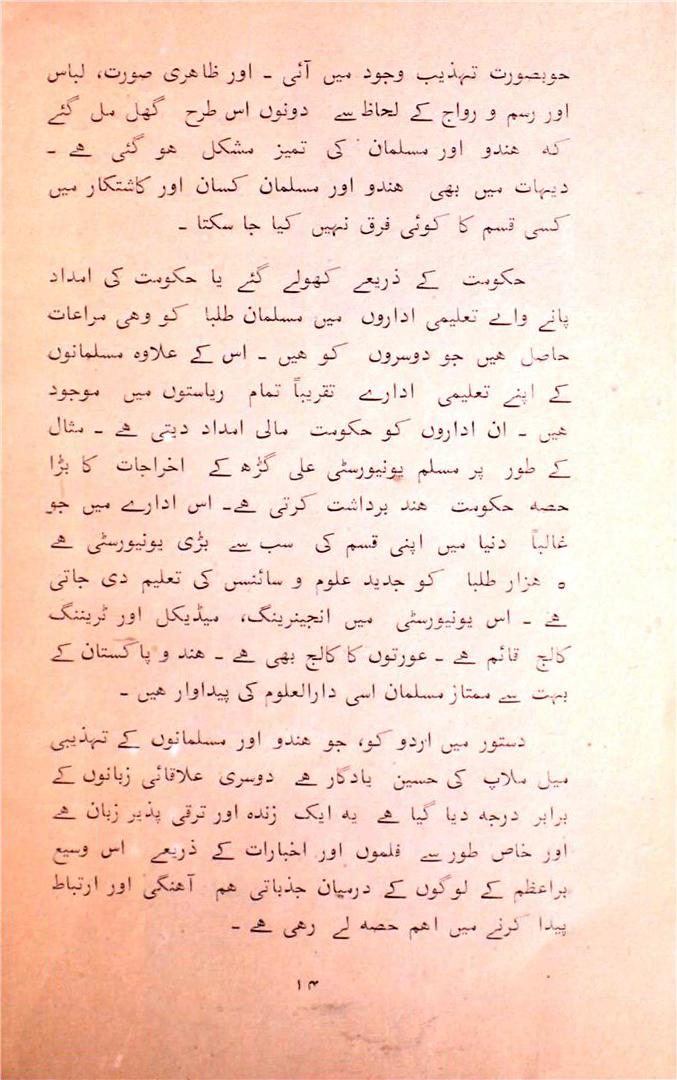 حوبصورت تہذیب وجود میں آئی ۔ اور ظاهری صورت، لباس
اور رسم و رواج کے لحاظ سے دونوں اس طرح گھل مل گئے
کہ هندو اور مسلمان کی تمیز مشکل هو گئی ہے ۔
دیہات میں بھی هندو اور مسلمان کسان اور کاشتکار میں
کسی قسم کا کوئی فرق نہیں کیا جا سکتا ۔
حکومت کے ذریعے کھولے گئے یا حکومت کی امداد
پانے والے تعلیمی اداروں میں مسلمان طلبا کو وهی مراعات
حاصل هیں جو دوسروں کو هیں ۔ اس کے علاوہ مسلمانوں
کے اپنے تعلیمی ادارے تقریباً تمام ریاستوں میں موجود
هیں ۔ ان اداروں کو حکومت مالی امداد دیتی ہے ۔ مثال
کے طور پر مسلم یونیورسٹی علی گڑھ کے اخراجات کا بڑا
حصہ حکومت هند برداشت کرتی ہے۔ اس ادارے میں جو
غالباً دنیا میں اپنی قسم کی سب سے بڑی یونیورسٹی ہے
۵ هزار طلبا کو جدید علوم و سائنس کی تعلیم دی جاتی
ہے ۔ اس یونیورسٹی میں انجینرینگ، میڈیکل اور ٹریننگ
کالج قائم ہے ۔ عورتوں کا کالج بھی ہے ۔ هند و پاکستان کے
بہت سے ممتاز مسلمان اسی دارالعلوم کی پیداوار هیں ۔
دستور میں اردو کو، جو هندو اور مسلمانوں کے تہذیبی
میل ملاپ کی حسین یادگار ہے دوسری علاقائی زبانوں کے
برابر درجہ دیا گیا ہے یه ایک زندہ اور ترقی پذیر زبان ہے
اور خاص طور سے فلموں اور اخبارات کے ذریعے اس وسیع
براعظم کے لوگوں کے درمیان جذباتی هم آهنگی اور ارتباط
پیدا کرنے میں اهم حصہ لے رهی ہے ۔
۱۴